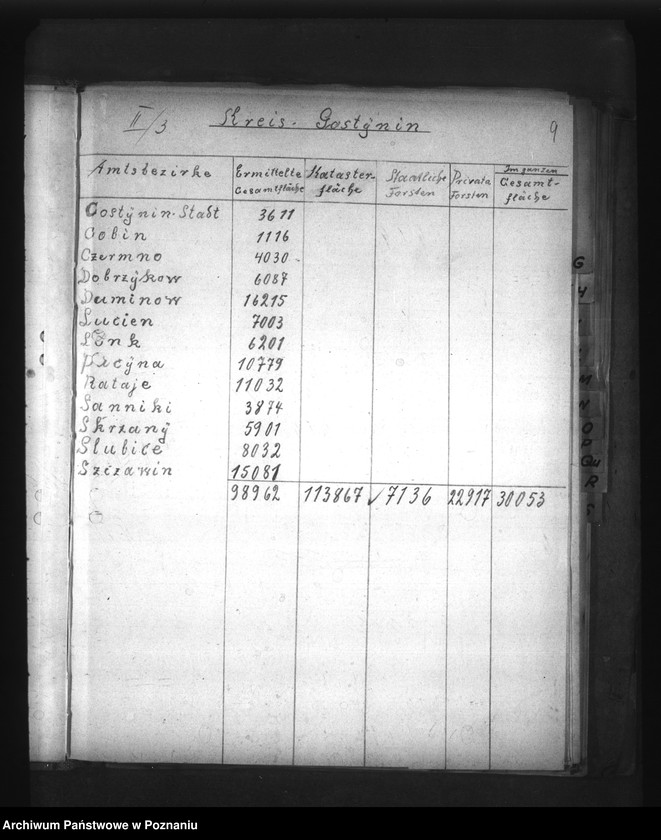 II/3 Kreis. Gostynin 9
Amtsbezirke Ermittelte Gesamtfläche Kataster-fläche Staatliche Forsten Private Forsten Im ganzen Gesamt-fläche
Gostynin-Stadt 3611
Gobin 1116
Czermno 4030
Dobrzykow 6087
Duminow 16215
Lucien 7003
Lonk 6201
Pacyna 10779
Rataje 11032
Sanniki 3874
Skrzany 5901
Slubice 8032
Szczawin 15081
98962 113867 7136 22917 30053
G
H
M
N
O
P
R
Archiwum Państwowe w Poznaniu